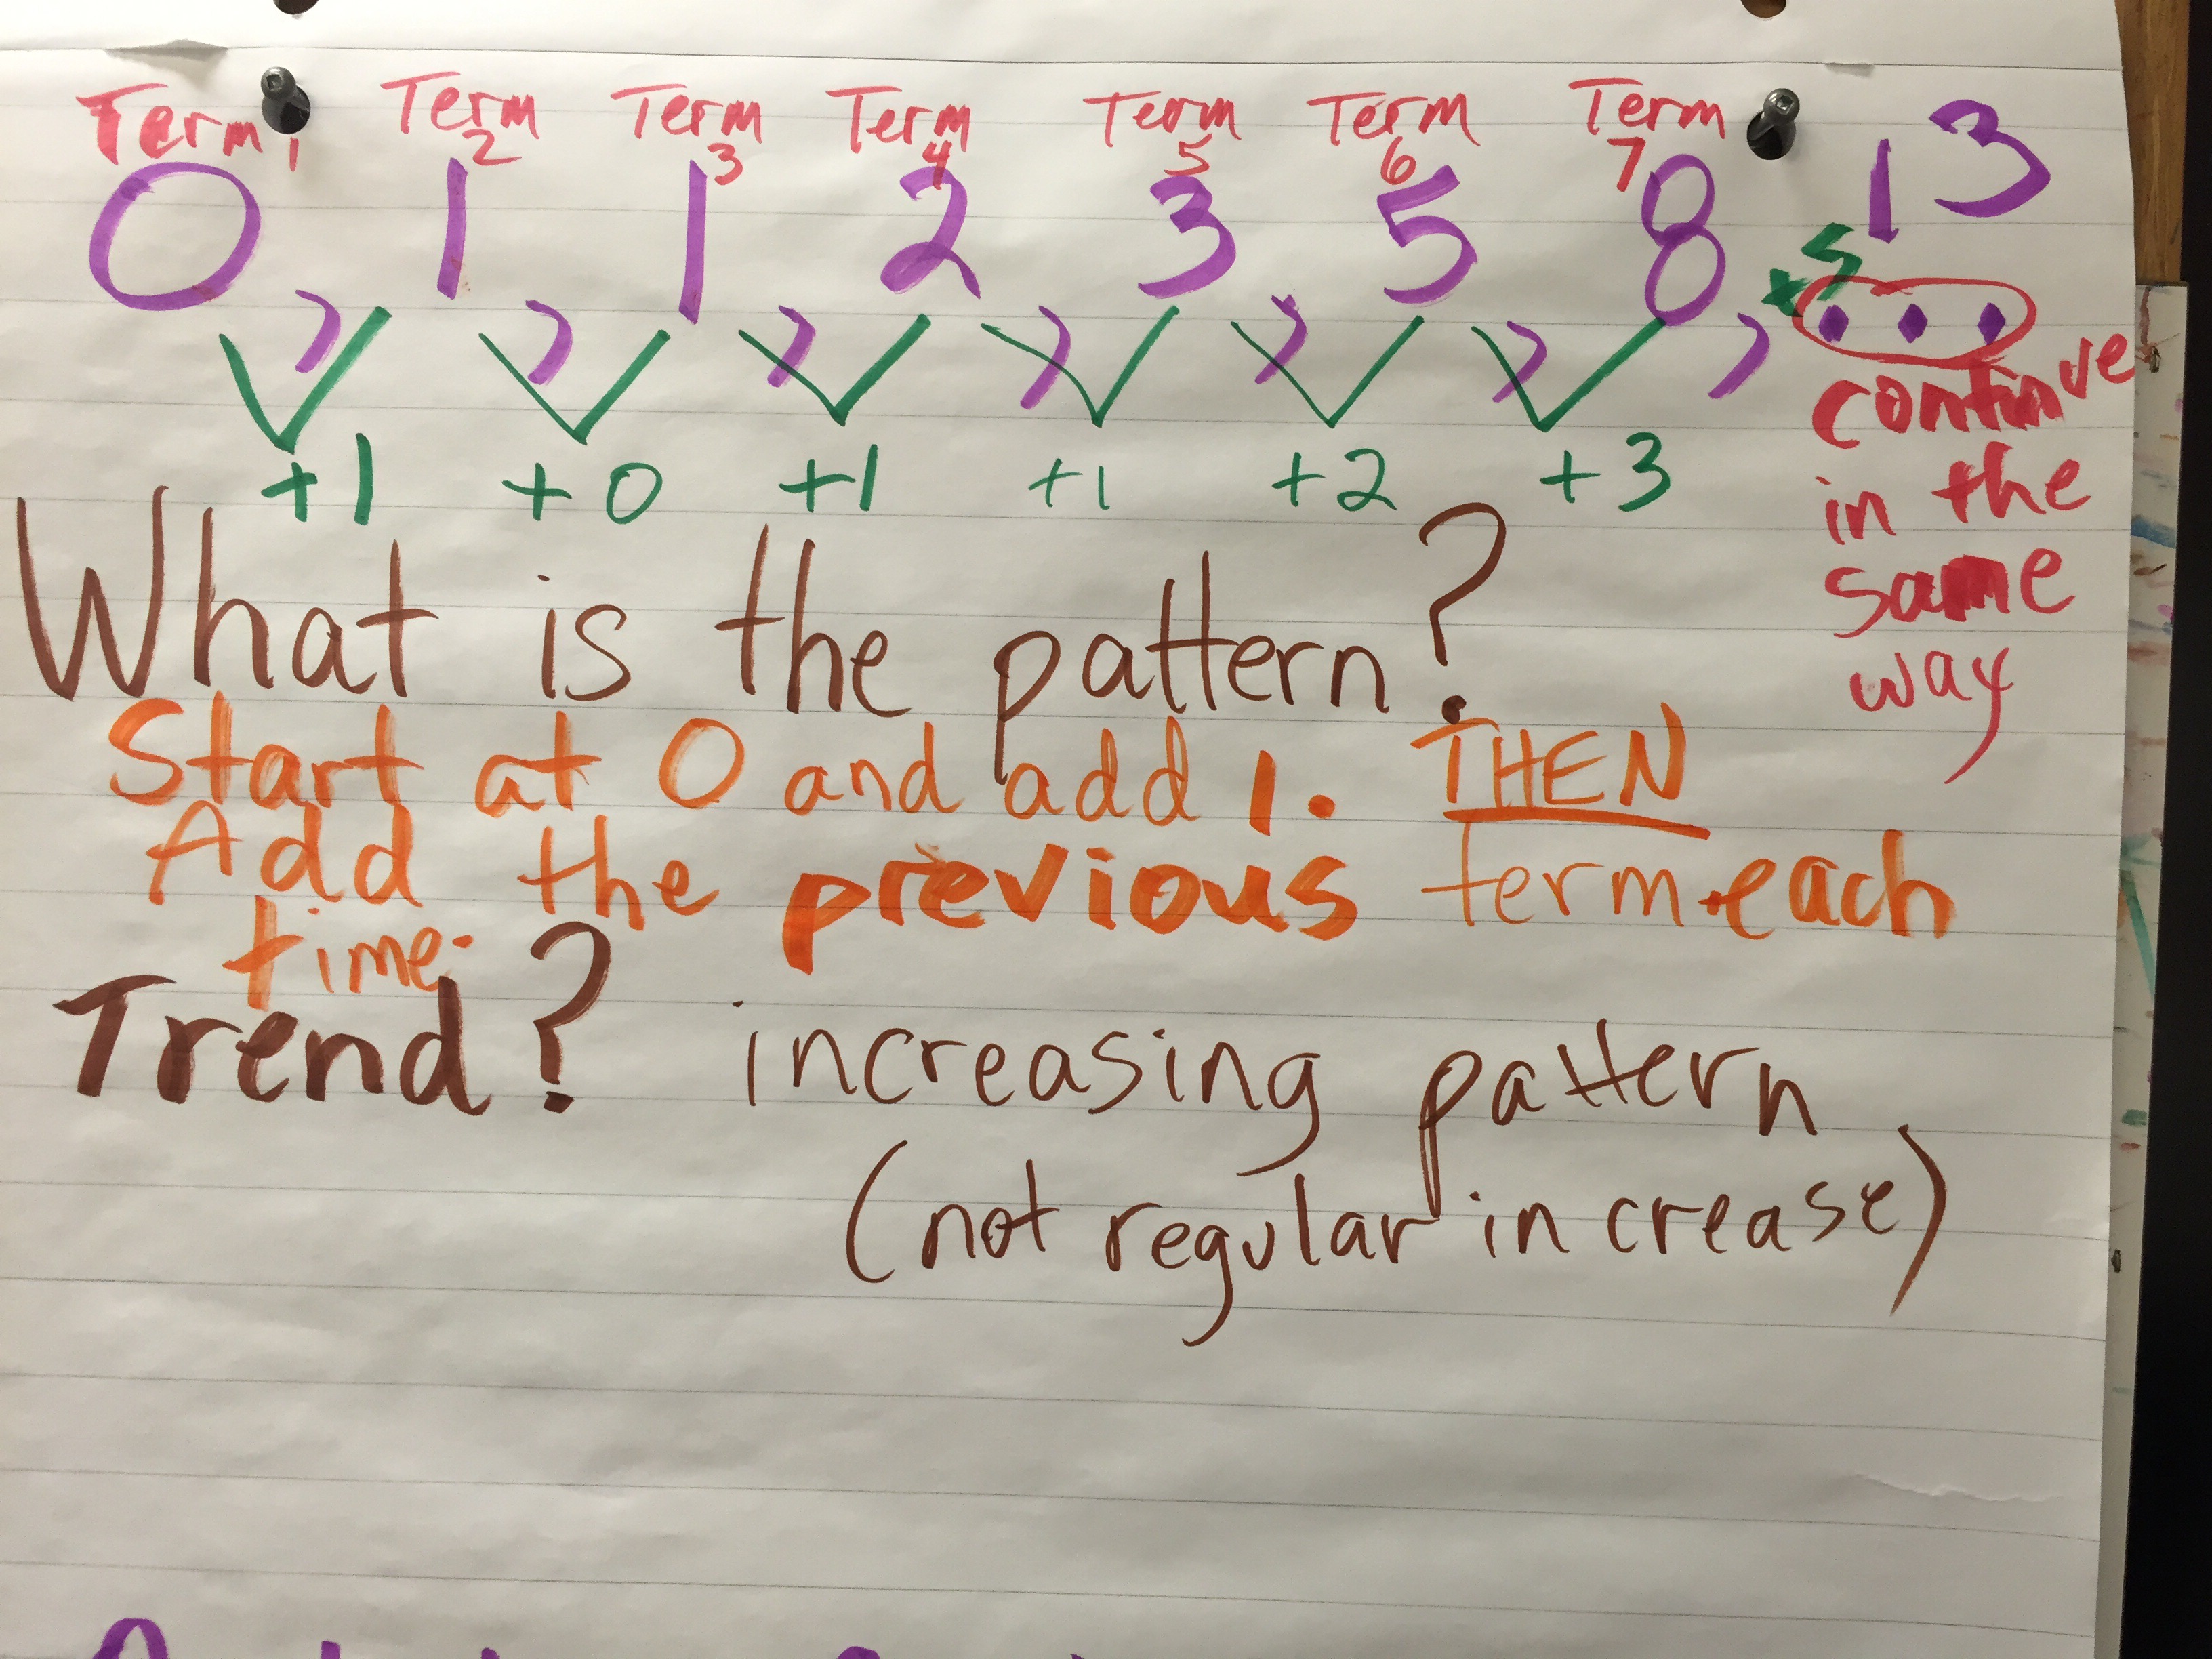 Term 1 Term 2 Term 3 Term 4 Term 5 Term 6 Term 7
0 , 1 , 1 , 2 , 3 , 5 , 8 , ... 13
+1 +0 +1 +1 +2 +3 +5
continue
in the
same
way
What is the pattern?
Start at 0 and add 1. THEN
Add the previous term each
time.
Trend? increasing pattern
(not regular increase)